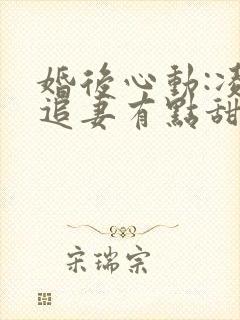 婚後心動:凌
追妻有點甜
宋瑞宗